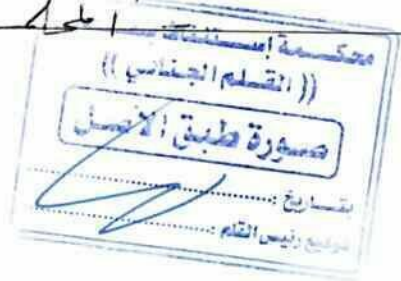 محكمة إستئناف
(( القلم الجنائي ))
صورة طبق الأصل
بتاريخ : ....................
توقيع رئيس القلم : ....................